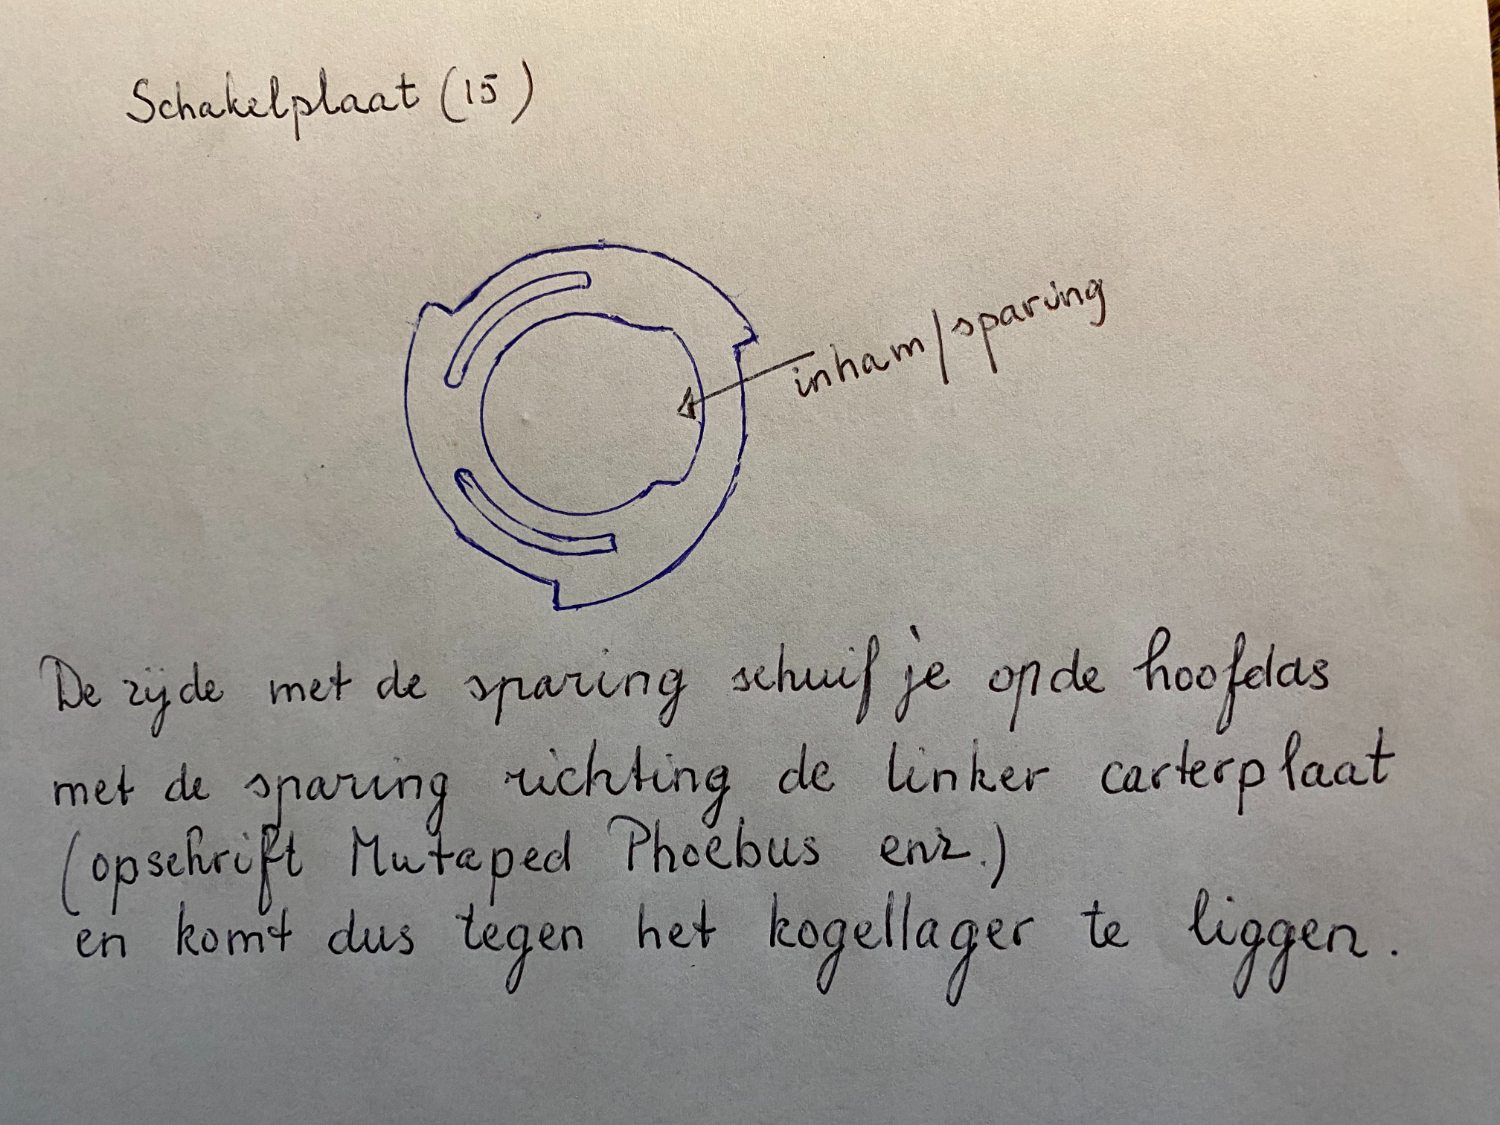 Schakelplaat (15)
inham/sparing
De zijde met de sparing schuif je op de hoofdas
met de sparing richting de linker carterplaat
(opschrift Mutaped Phoebus enz.)
en komt dus tegen het kogellager te liggen.